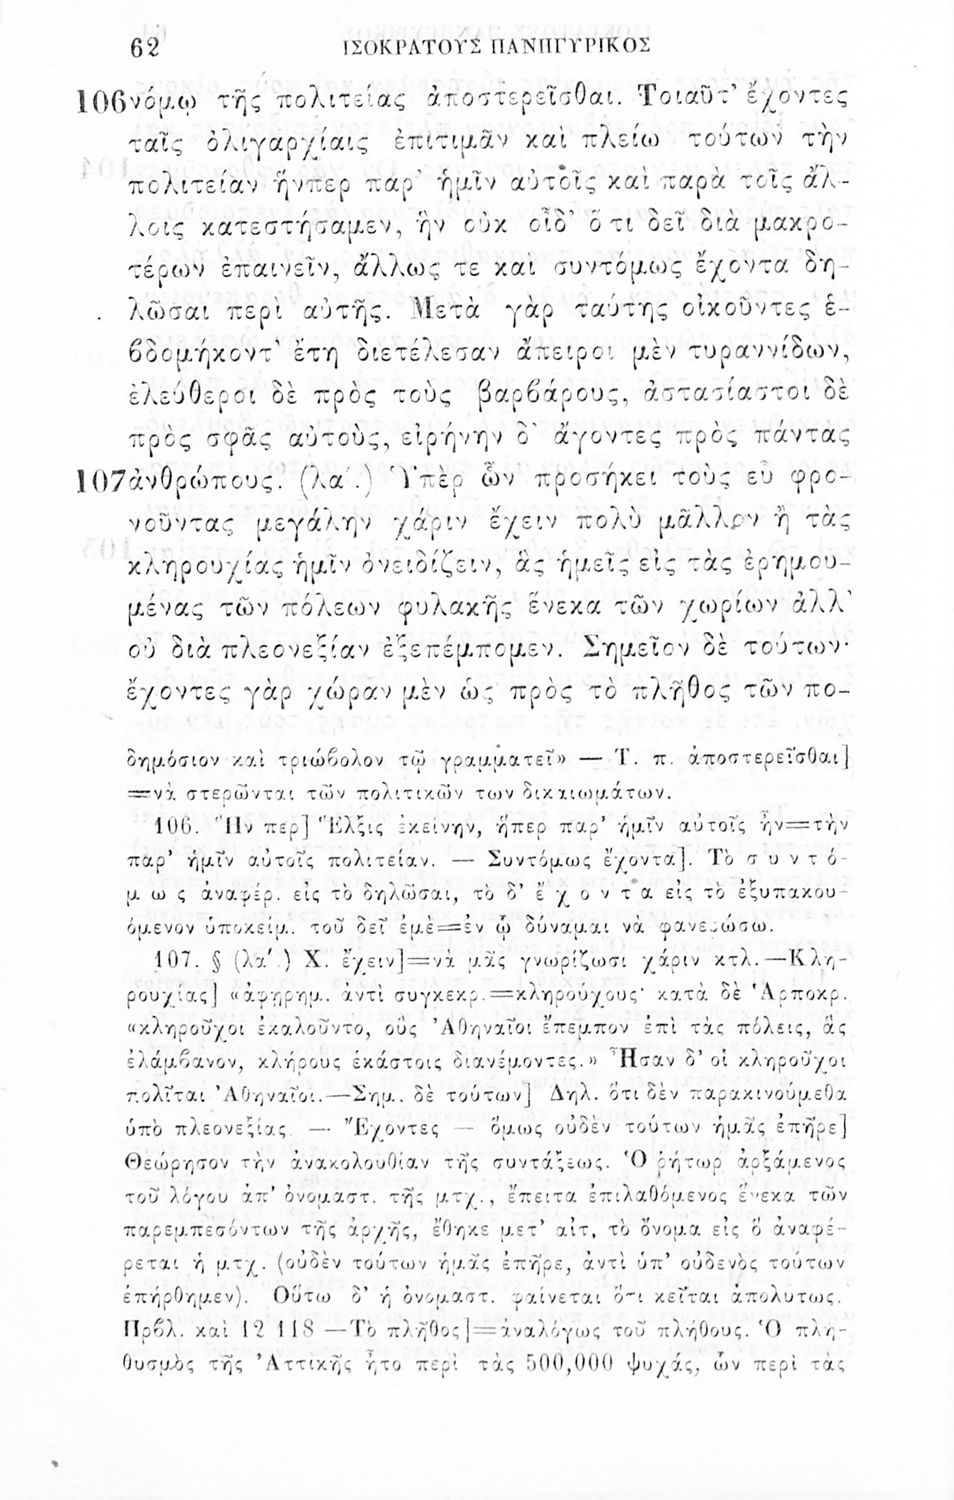 62 ΙΣΟΚΡΑΤΟΥΣ ΠΑΝΗΓΥΡΙΚΟΣ
106 νόμῳ τῆς πολιτείας ἀποστερεῖσθαι. Τοιαῦτ' ἔχοντες
ταῖς ὀλιγαρχίαις ἐπιτιμᾶν καὶ πλείω τούτων τὴν
πολιτείαν ἥνπερ παρ' ἡμῖν αὐτοῖς καὶ παρὰ τοῖς ἄλ-
λοις κατεστήσαμεν, ἣν οὐκ οἶδ' ὅ τι δεῖ διὰ μακρο-
τέρων ἐπαινεῖν, ἄλλως τε καὶ συντόμως ἔχοντα δη-
λῶσαι περὶ αὐτῆς. Μετὰ γὰρ ταύτης οἰκοῦντες ἑ-
βδομήκοντ' ἔτη διετέλεσαν ἄπειροι μὲν τυραννίδων,
ἐλεύθεροι δὲ πρὸς τοὺς βαρβάρους, ἀστασίαστοι δὲ
πρὸς σφᾶς αὐτοὺς, εἰρήνην δ' ἄγοντες πρὸς πάντας
107 ἀνθρώπους. (λα'.) Ὑπὲρ ὧν προσήκει τοὺς εὖ φρο-
νοῦντας μεγάλην χάριν ἔχειν πολὺ μᾶλλον ἢ τὰς
κληρουχίας ἡμῖν ὀνειδίζειν, ἃς ἡμεῖς εἰς τὰς ἐρημου-
μένας τῶν πόλεων φυλακῆς ἕνεκα τῶν χωρίων ἀλλ'
οὐ διὰ πλεονεξίαν ἐξεπέμπομεν. Σημεῖον δὲ τούτων·
ἔχοντες γὰρ χώραν μὲν ὡς πρὸς τὸ πλῆθος τῶν πο-
δημόσιον καὶ τριώβολον τῷ γραμματεῖ» — Τ. π. ἀποστερεῖσθαι]
=νὰ στερῶνται τῶν πολιτικῶν των δικαιωμάτων.
106. Ἣν περ] Ἕλξις ἐκείνην, ἥπερ παρ' ἡμῖν αὐτοῖς ἦν=τὴν
παρ' ἡμῖν αὐτοῖς πολιτείαν. — Συντόμως ἔχοντα]. Τὸ σ υ ν τ ό-
μ ω ς ἀναφέρ. εἰς τὸ δηλῶσαι, τὸ δ' ἔ χ ο ν τ α εἰς τὸ ἐξυπακου-
όμενον ὑποκείμ. τοῦ δεῖ ἐμὲ=ἐν ᾧ δύναμαι νὰ φανερώσω.
107. § (λα'.) Χ. ἔχειν]=νὰ μᾶς γνωρίζωσι χάριν κτλ.—Κλη-
ρουχίας] «ἀφῃρημ. ἀντὶ συγκεκρ.=κληρούχους· κατὰ δὲ Ἁρποκρ.
«κληροῦχοι ἐκαλοῦντο, οὓς Ἀθηναῖοι ἔπεμπον ἐπὶ τὰς πόλεις, ἃς
ἐλάμβανον, κλήρους ἑκάστοις διανέμοντες.» Ἦσαν δ' οἱ κληροῦχοι
πολῖται Ἀθηναῖοι.—Σημ. δὲ τούτων] Δηλ. ὅτι δὲν παρακινούμεθα
ὑπὸ πλεονεξίας. — Ἔχοντες — ὅμως οὐδὲν τούτων ἡμᾶς ἐπῆρε]
Θεώρησον τὴν ἀνακολουθίαν τῆς συντάξεως. Ὁ ῥήτωρ ἀρξάμενος
τοῦ λόγου ἀπ' ὀνομαστ. τῆς μτχ., ἔπειτα ἐπιλαθόμενος ἕνεκα τῶν
παρεμπεσόντων τῆς ἀρχῆς, ἔθηκε μετ' αἰτ. τὸ ὄνομα εἰς ὃ ἀναφέ-
ρεται ἡ μτχ. (οὐδὲν τούτων ἡμᾶς ἐπῆρε, ἀντὶ ὑπ' οὐδενὸς τούτων
ἐπήρθημεν). Οὕτω δ' ἡ ὀνομαστ. φαίνεται ὅτι κεῖται ἀπολύτως.
Πρβλ. καὶ 12 118 —Τὸ πλῆθος]=ἀναλόγως τοῦ πλήθους. Ὁ πλη-
θυσμὸς τῆς Ἀττικῆς ἦτο περὶ τὰς 500,000 ψυχάς, ὧν περὶ τὰς